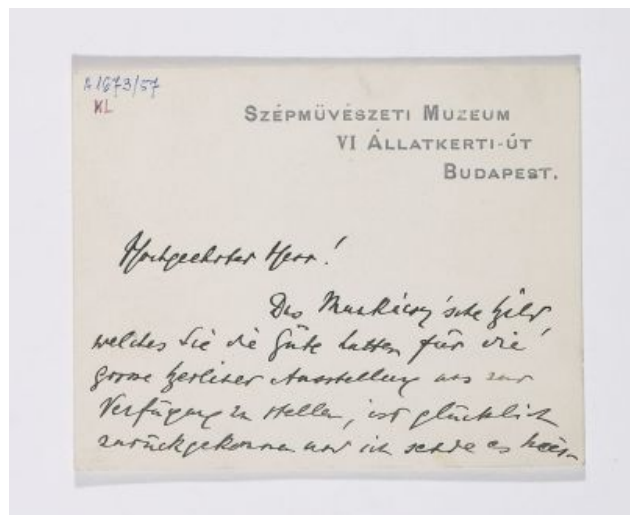 A 1673/57
KL
SZÉPMÜVÉSZETI MUZEUM
VI ÁLLATKERTI-ÚT
BUDAPEST.
Hochgeehrter Herr!
Das Munkácsy'sche Bild
welches Sie die Güte hatten für die
grosse Berliner Ausstellung uns zur
Verfügung zu stellen, ist glücklich
zurückgekommen und ich sende es hier-